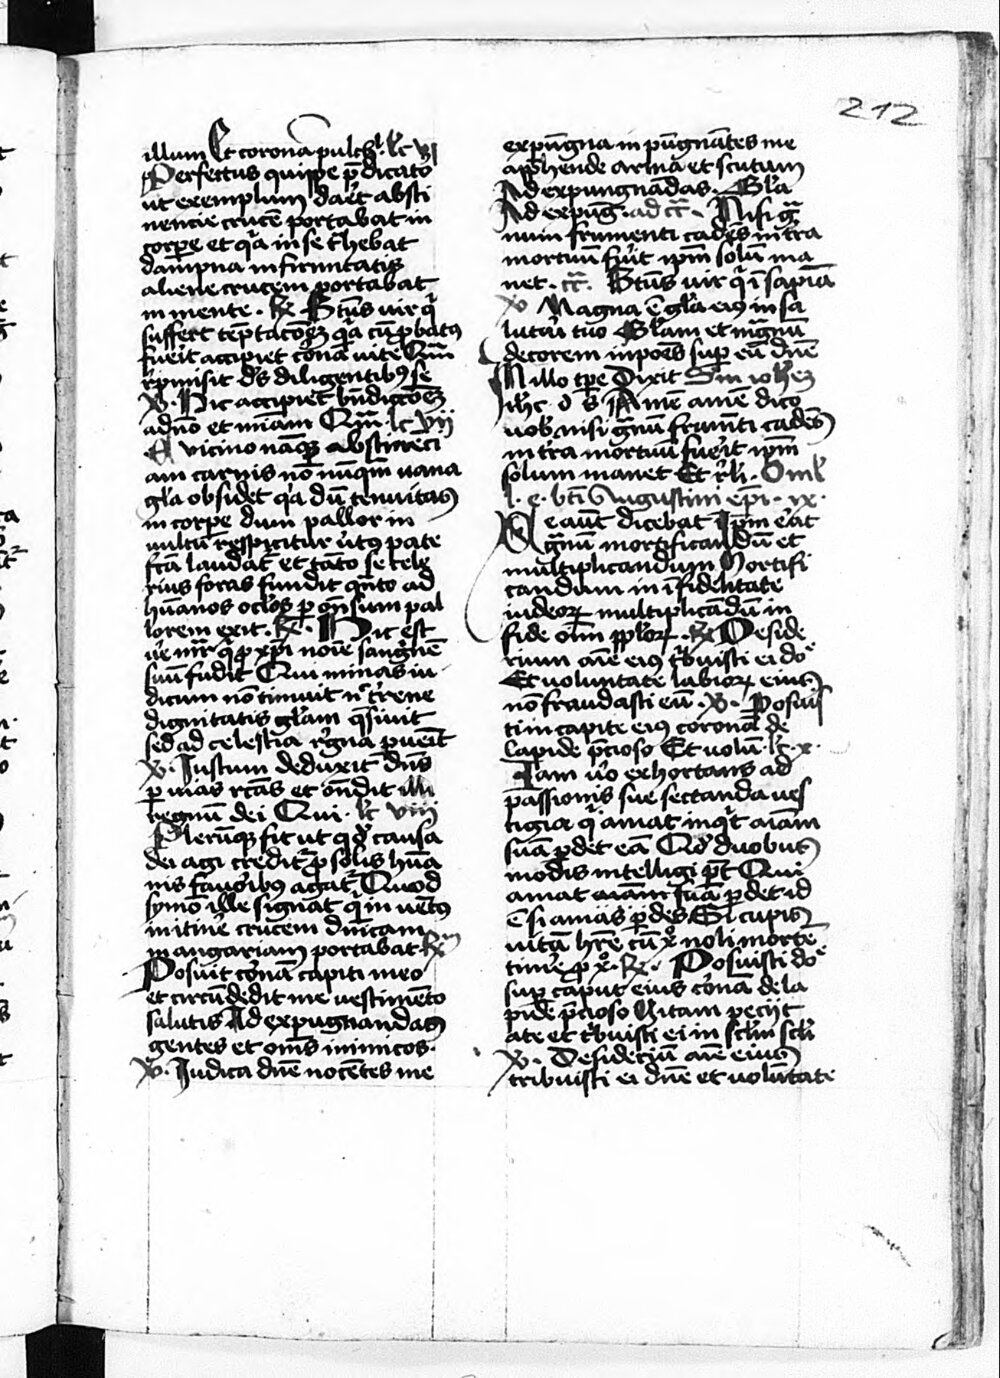 212
illum Et coronā pulch̄ lc̄ vj
Perfectus quippe p̄dicato
ut exemplum daret absti
nencie crucē portabat in
corpe et qͥa in se t̾hebat
dampna infirmitatis
aliene crucem portabat
in mente . R̄ . Btūs uir qͥ
suffert tēptacōeȝ qͥa cū ꝓbatꝰ
fuerit accipiet coronā uite Quā
rep̄misit ds̄ diligentibꝰ se
V̄ . Hic accipiet bn̄diccōeȝ
a dnō et mīam Quā lc̄ vij
E uicino nāqꝫ abstinenci
am carnis nō nūqͣm uana
glā obsidet qͥa dū tenuitas
in corpe dum pallor in
uultū respicitur uirtꝰ pate
fcā laudat̄ et tāto se cele
rius foras fundit qͣnto ad
hūanos oclōs ꝑ oñsum pal
lorem exit . R̄ . Hic est
ue mr̄ qͥ ꝓ xp̄i noīe sangͥnē
suū fudit Qui minas iu
dicum nō timuit nͨ t̾rene
dignitatis glām qͣsiuit
sed ad celestia regna ꝑueīt
V̄ . Iustum deduxit dn̄s
ꝑ uias rc̄as et oñdit illi
regnū dei Qui . lc̄ viij
Plerūqꝫ fit ut qͦd causa
dei agi credit̄ ꝓ solis hūa
nis fauoribꝰ agat̄ Quod
symō ille signat qͥ in uētꝰ
in itin̄e crucem dnīcam
in angariam portabat R̄
Posuit coronā capiti meo
et circūdedit me uestimēto
salutis Ad expugnandas
gentes et oms̄ inimicos .
V̄ . Iudica dnē nocētes me
expūgna inpūgnātes me
apꝓhende arma et scutum
Ad expungnādas . Glā
Ad expūg . ad cāt . Nisi gͣ
num frumenti cadēs in t̾ra
mortuū fūit ipm̄ solū ma
net . Btūs uir qͥ ī sapiā
V̄ Magna ē glā eiꝰ in sa
lutari tuo Glām et mgnū
decorem inpoēs sup̱ eū dnē
In illo tp̄e Dixit Sm ioh̄eȝ
ih̄c d s Amē amē dico
uob̄ nisi gͣnū frumti cadēs
in t̾ra mortuū fuerit ipm̄
solum manet Et r̄l . Oml̄
l . e . bti Augustini ep̄i . ix .
Se aūt dicebat Ipm̄ erat
gͣnū mortificandū et
multiplicandum Mortifi
candum in īfidelitate
iudeoꝝ multiplicādū in
fide oīm pplōꝝ . R̄ Deside
rium aīe eiꝰ tͥbuisti ei doͤ
Et voluntate labioꝝ eius
nō fraudasti eū . V̄ . Posuis
ti in capite eiꝰ coronā de
lapide p̄cioso Et uolū . lc̄ . x .
Iam u̾o exhortans ad
passionis sue sectanda ues
tigia qͥ amat inqͥt aīam
suā ꝑdet eā Qd̾ duobus
modis intelligi pt̄ Qui
amat aīam suā ꝑdet id
ē si amas ꝑdes Si cupis
uitā hr̄e cū xͦ noli morte
time ꝓ xͦ . R̄ . Posuisti doͤ
sup̱ caput eius coronā de la
pide p̄cioso Uitam peciit
a te et tͥbuisti ei in sclm̄ sclī
V̄ . Desideriū aīe eius
tribuisti ei dnē et uolūtate